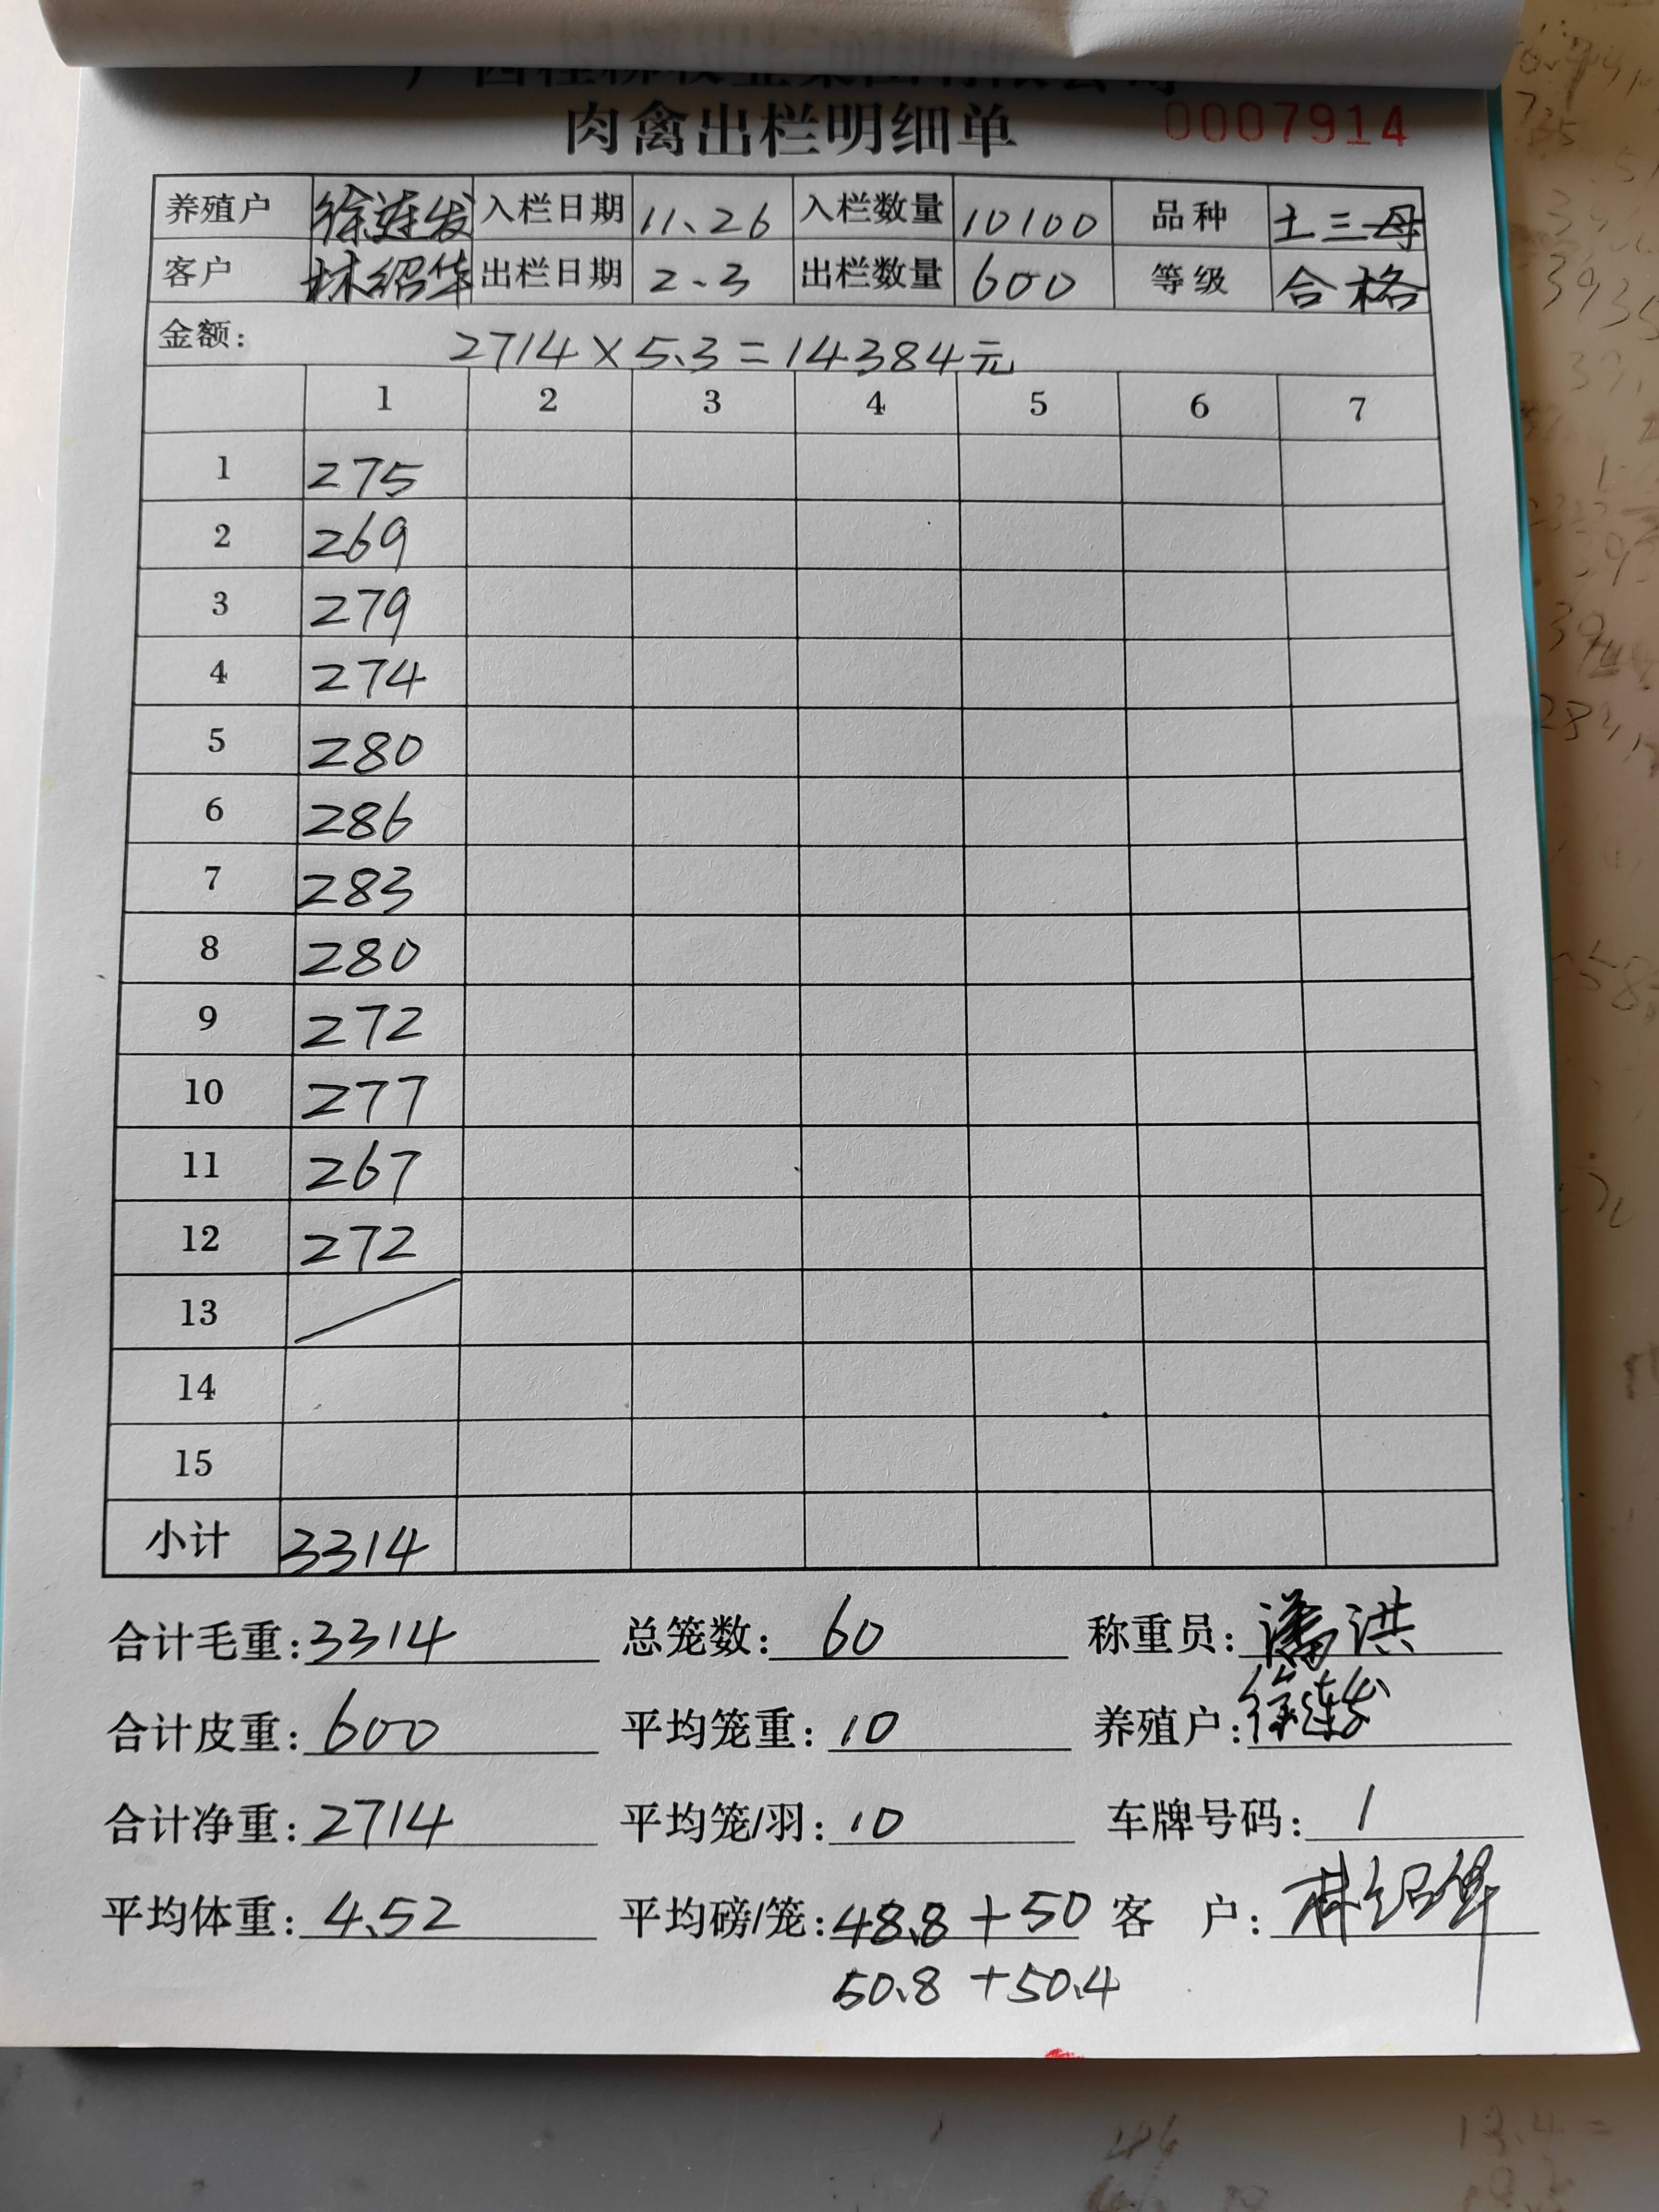 肉禽出栏明细单 0007914
养殖户 徐连发 入栏日期 11、26 入栏数量 10100 品种 土三母
客户 林绍华 出栏日期 2、3 出栏数量 600 等级 合格
金额: 2714×5.3=14384元
1 2 3 4 5 6 7
1 275
2 269
3 279
4 274
5 280
6 286
7 283
8 280
9 272
10 277
11 267
12 272
13
14
15
小计 3314
合计毛重:3314 总笼数:60 称重员:潘洪
合计皮重:600 平均笼重:10 养殖户:徐连发
合计净重:2714 平均笼/羽:10 车牌号码:1
平均体重:4.52 平均磅/笼:48.8+50 客 户:林绍华
50.8+50.4